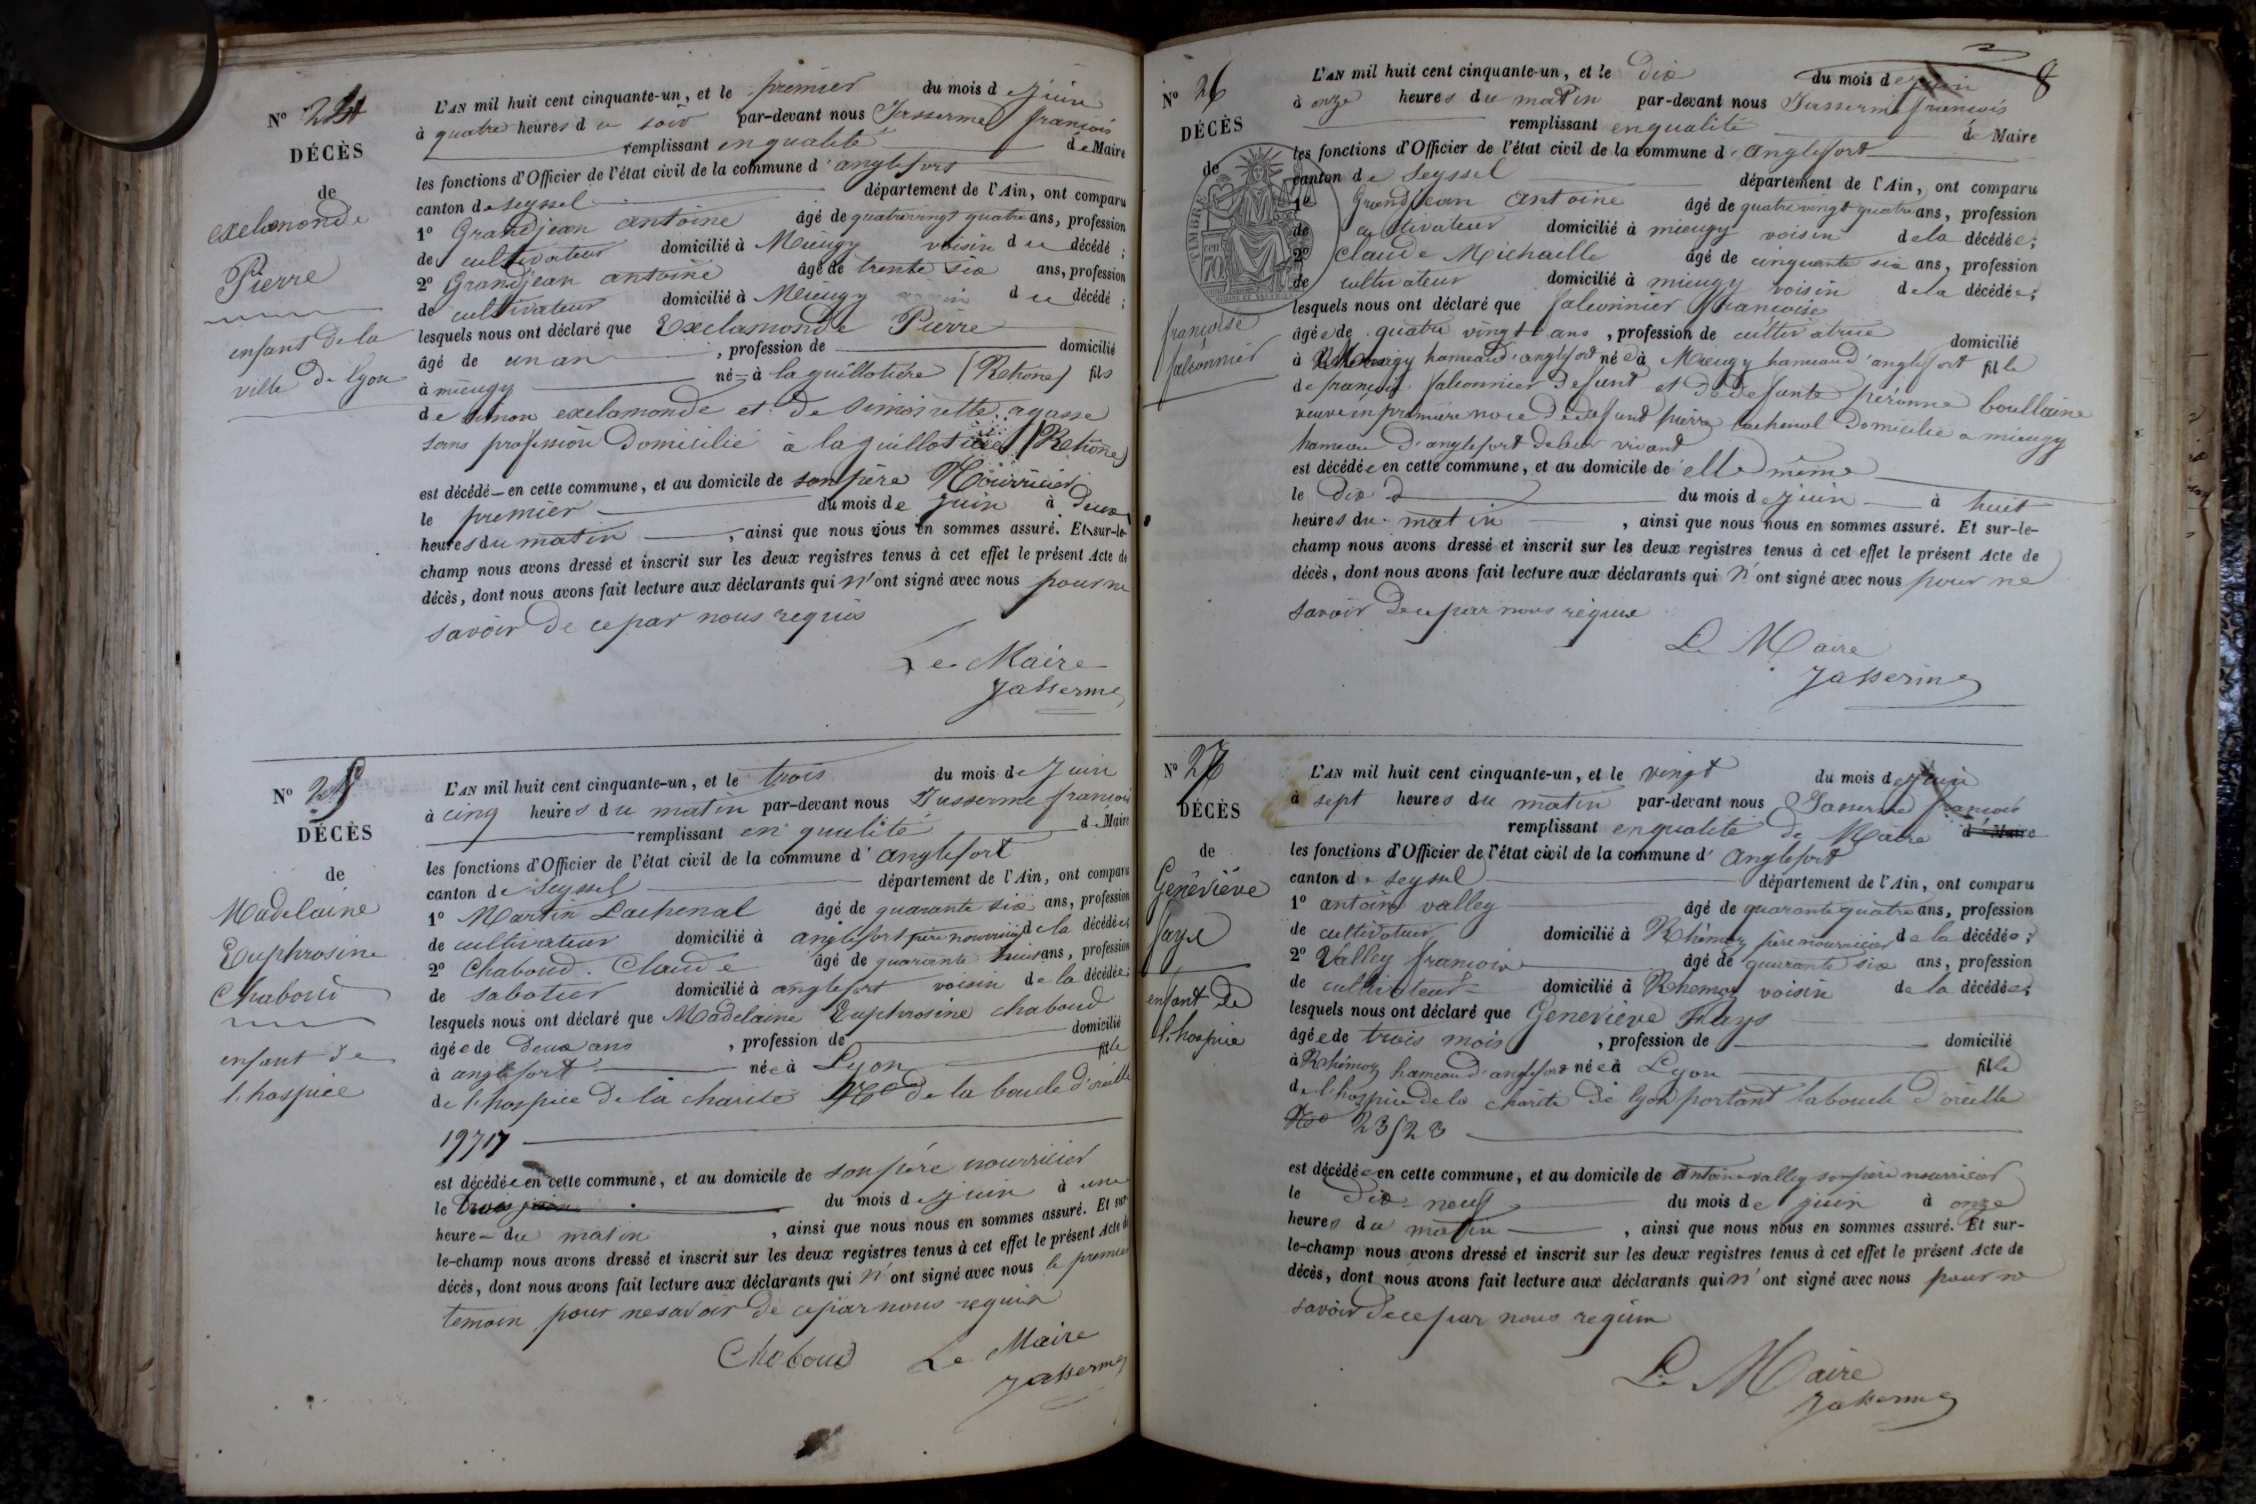 N° 24
DÉCÈS
de
exclamonde
Pierre
enfant de la
ville de lyon
L'AN mil huit cent cinquante-un, et le premier du mois de juin
à quatre heures du soir par-devant nous Jasserme françois
remplissant en qualité de Maire
les fonctions d'Officier de l'état civil de la commune d'anglefort
canton de seyssel département de l'Ain, ont comparu
1° Grandjean antoine âgé de quatrevingt quatre ans, profession
de cultivateur domicilié à Mieugy voisin du décédé;
2° Grandjean antoine âgé de trente six ans, profession
de cultivateur domicilié à Mieugy du décédé;
lesquels nous ont déclaré que Exclamonde Pierre
âgé de un an, profession de domicilié
à mieugy né à la guillotière (Rehône) fils
de simon exclamonde et de simoinette agasse
sans profession Domicilié à la guillotière (Rehône)
est décédé en cette commune, et au domicile de son père Nourricier
le premier du mois de juin à deux
heures du matin, ainsi que nous nous en sommes assuré. Et sur-le-
champ nous avons dressé et inscrit sur les deux registres tenus à cet effet le présent Acte de
décès, dont nous avons fait lecture aux déclarants qui n'ont signé avec nous pour ne
savoir de ce par nous requis
Le Maire
Jasserme
N° 25
DÉCÈS
de
Madelaine
Euphrosine
Chaboud
enfant de
l'hospice
L'AN mil huit cent cinquante-un, et le trois du mois de Juin
à cinq heures du matin par-devant nous Jusserme françois
remplissant en qualité de Maire
les fonctions d'Officier de l'état civil de la commune d'anglefort
canton de Seyssel département de l'Ain, ont comparu
1° Martin Lachenal âgé de quarante six ans, profession
de cultivateur domicilié à anglefort père nourricier de la décédée;
2° Chaboud Claude âgé de quarante huit ans, profession
de sabotier domicilié à anglefort voisin de la décédée;
lesquels nous ont déclaré que Madelaine Euphrosine chaboud
âgée de deux ans, profession de domicilié
à anglefort née à Lyon fille
de l'hospice de la charité N° de la boucle d'oreille
19717
est décédée en cette commune, et au domicile de son père nourricier
le trois juin du mois de juin à une
heure du matin, ainsi que nous nous en sommes assuré. Et sur-
le-champ nous avons dressé et inscrit sur les deux registres tenus à cet effet le présent Acte de
décès, dont nous avons fait lecture aux déclarants qui n'ont signé avec nous le premier
temoin pour ne savoir de ce par nous requis
Chaboud Le Maire
Jasserme
8
N° 26
DÉCÈS
de
TIMBRE
70
françoise
falconnier
L'AN mil huit cent cinquante-un, et le dix du mois de juin
à onze heures du matin par-devant nous Jusserme françois
remplissant en qualité de Maire
les fonctions d'Officier de l'état civil de la commune d'anglefort
canton de Seyssel département de l'Ain, ont comparu
1° Grandjean antoine âgé de quatre vingt quatre ans, profession
de cultivateur domicilié à mieugy voisin de la décédée;
2° Claude Michaille âgé de cinquante six ans, profession
de cultivateur domicilié à mieugy voisin de la décédée;
lesquels nous ont déclaré que falconnier françoise
âgée de quatre vingt ans, profession de cultivatrice domicilié
à Mieugy hameau d'anglefort née à Mieugy hameau d'anglefort fille
de françois falconnier defunt et de defunte péronne boullaine
veuve en premiere noce de defunt pierre lachenal Domicilié a mieugy
hameau d'anglefort de leur vivant
est décédée en cette commune, et au domicile de elle même
le Dix du mois de juin à huit
heures du matin, ainsi que nous nous en sommes assuré. Et sur-le-
champ nous avons dressé et inscrit sur les deux registres tenus à cet effet le présent Acte de
décès, dont nous avons fait lecture aux déclarants qui n'ont signé avec nous pour ne
savoir de ce par nous requis
Le Maire
Jasserme
N° 27
DÉCÈS
de
Geneviève
fays
enfant de
l'hospice
L'AN mil huit cent cinquante-un, et le vingt du mois de juin
à sept heures du matin par-devant nous Jasserme françois
remplissant en qualité de Maire de Maire
les fonctions d'Officier de l'état civil de la commune d'anglefort
canton de seyssel département de l'Ain, ont comparu
1° antoine valley âgé de quarante quatre ans, profession
de cultivateur domicilié à Rhémoz père nourricier de la décédée;
2° Valley françois âgé de quarante six ans, profession
de cultivateur domicilié à Rhemoz voisin de la décédée;
lesquels nous ont déclaré que Geneviève Fays
âgée de trois mois, profession de domicilié
à Rhémoz hameau d'anglefort née à Lyon fille
de l'hospice de la charité de lyon portant la boucle d'oreille
N° 23523
est décédée en cette commune, et au domicile de antoine valley son père nourricier
le dix-neuf du mois de juin à onze
heures du matin, ainsi que nous nous en sommes assuré. Et sur-
le-champ nous avons dressé et inscrit sur les deux registres tenus à cet effet le présent Acte de
décès, dont nous avons fait lecture aux déclarants qui n'ont signé avec nous pour ne
savoir de ce par nous requis
Le Maire
Jasserme